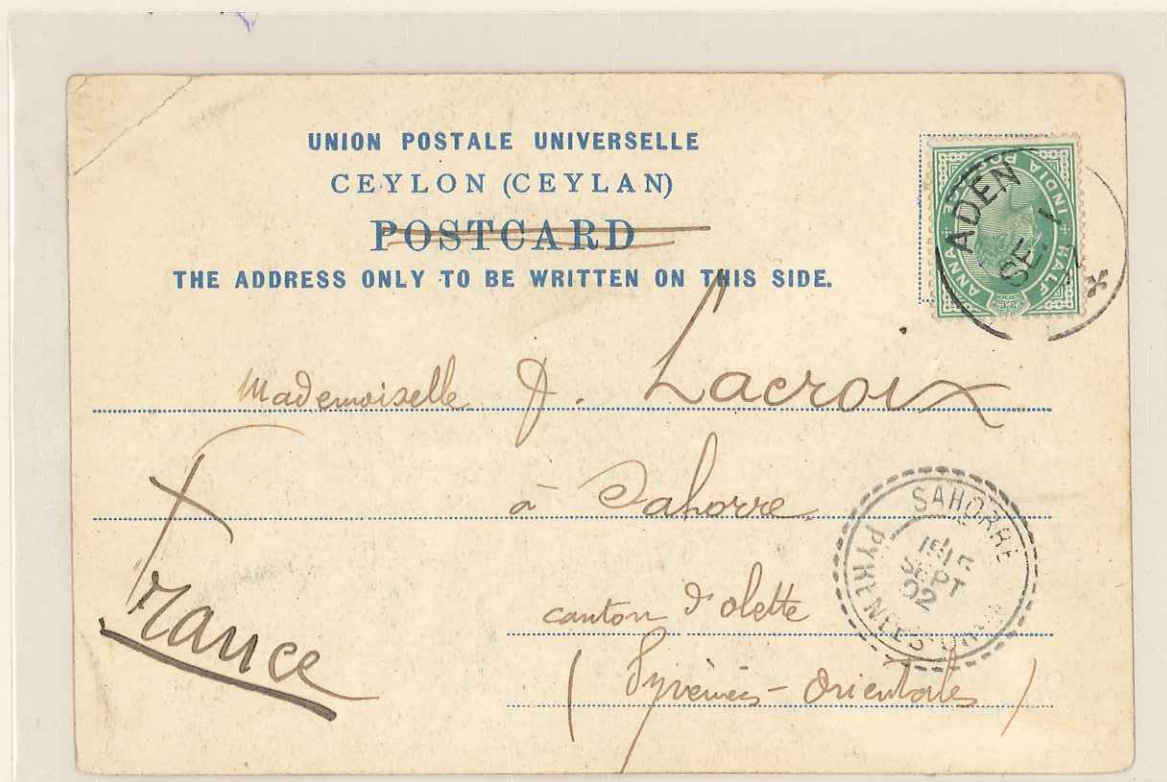 UNION POSTALE UNIVERSELLE
CEYLON (CEYLAN)
POSTCARD
THE ADDRESS ONLY TO BE WRITTEN ON THIS SIDE.
INDIA POSTAGE
HALF ANNA
ADEN
SE 1
Mademoiselle J. Lacroix
à Sahorre
canton d'olette
(Pyrénées-Orientales)
France
SAHORRE
SEPT
02
PYRENEES